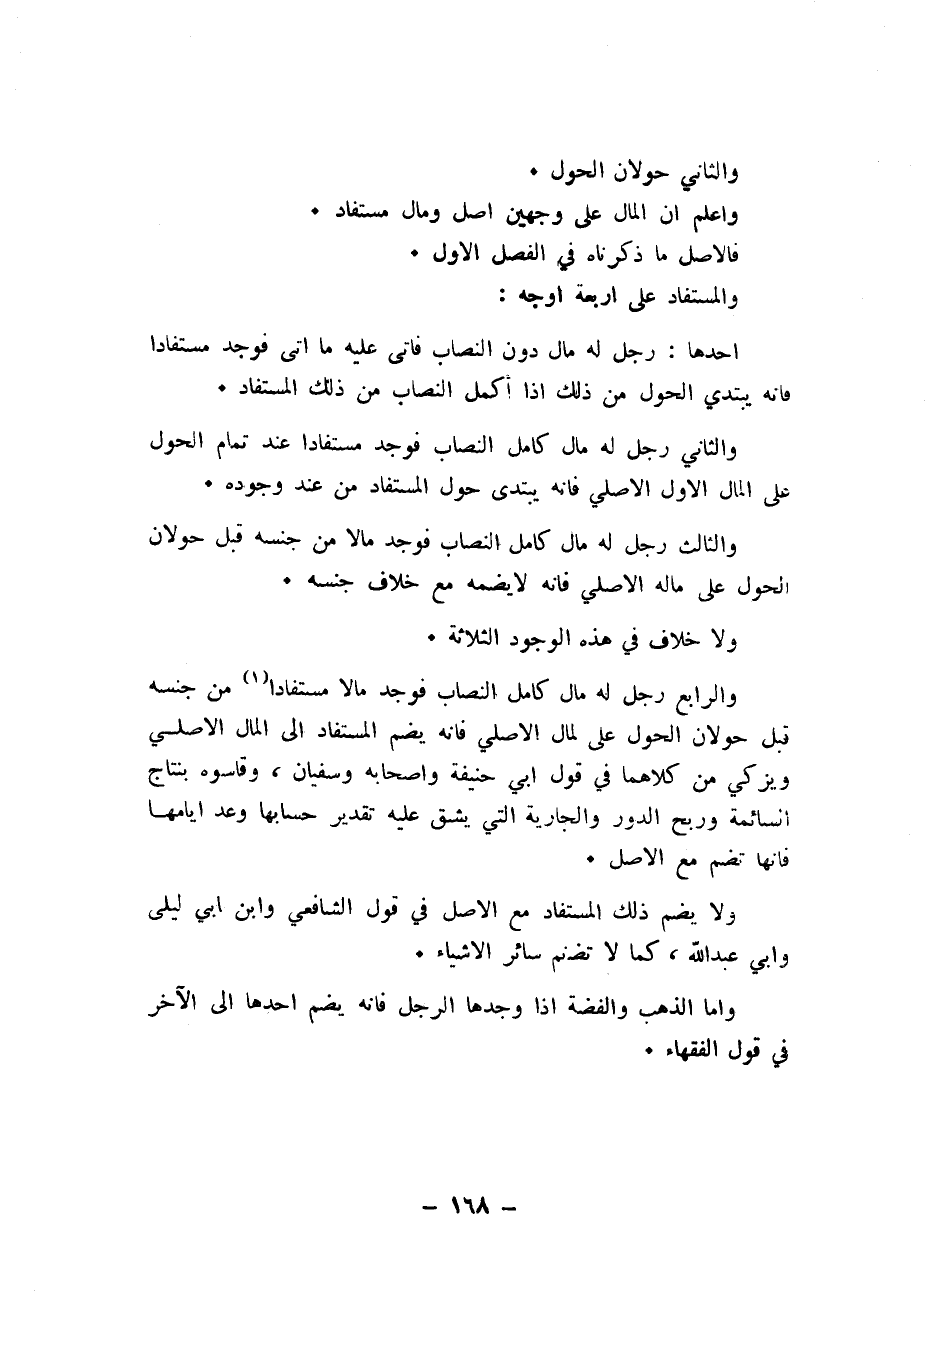 والثاني حولان الحول •
واعلم ان المال على وجهين اصل ومال مستفاد •
فالاصل ما ذكرناه في الفصل الاول •
والمستفاد على اربعة اوجه :
احدها : رجل له مال دون النصاب فاتى عليه ما اتى فوجد مستفادا
فانه يبتدي الحول من ذلك اذا أكمل النصاب من ذلك المستفاد •
والثاني رجل له مال كامل النصاب فوجد مستفادا عند تمام الحول
على المال الاول الاصلي فانه يبتدى حول المستفاد من عند وجوده •
والثالث رجل له مال كامل النصاب فوجد مالا من جنسه قبل حولان
الحول على ماله الاصلي فانه لايضمه مع خلاف جنسه •
ولا خلاف في هذه الوجود الثلاثة •
والرابع رجل له مال كامل النصاب فوجد مالا مستفادا(١) من جنسه
قبل حولان الحول على لمال الاصلي فانه يضم المستفاد الى المال الاصلي
ويزكي من كلاهما في قول ابي حنيفة واصحابه وسفيان ، وقاسوه بنتاج
السائمة وربح الدور والجارية التي يشق عليه تقدير حسابها وعد ايامها
فانها تضم مع الاصل •
ولا يضم ذلك المستفاد مع الاصل في قول الشافعي وابن ابي ليلى
وابي عبدالله ، كما لا تضم سائر الاشياء •
واما الذهب والفضة اذا وجدها الرجل فانه يضم احدها الى الآخر
في قول الفقهاء •
- ١٦٨ -